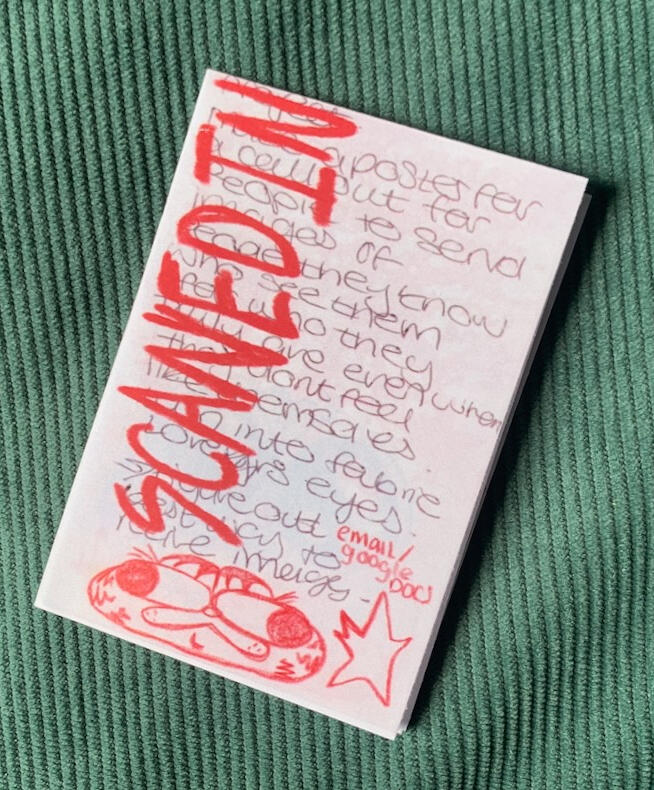 SCANED IN
a poster for
a call out for
People to send
images of
People they know
who see them
for who they
truly are even when
they dont feel
like themselves.
into favorite
Lovers eyes.
figure out
best way to
recive imeigs.
email/
google
Docs